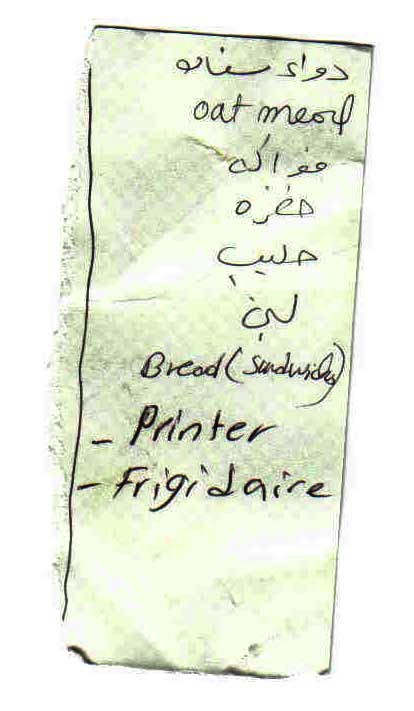 دواء سنان
oat meal
فواكه
خضره
حليب
لبن
Bread (sandwich)
- Printer
- Frigidaire